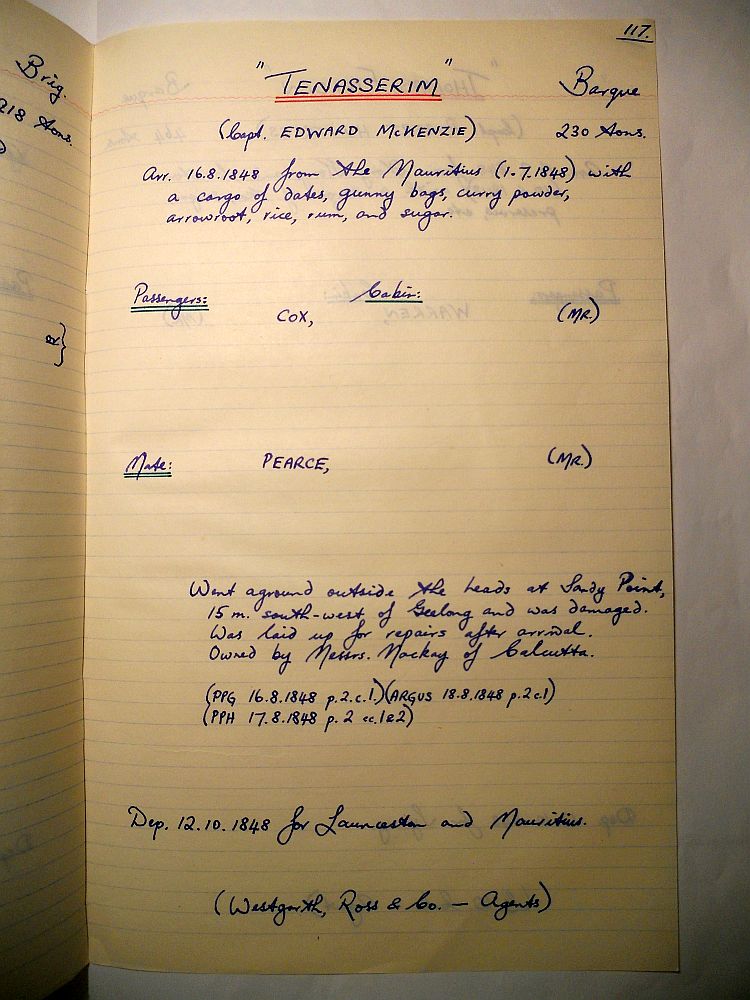 117.
Brig.
218 tons.
"TENASSERIM" Barque
(Capt. EDWARD McKENZIE) 230 tons.
Arr. 16.8.1848 from the Mauritius (1.7.1848) with
a cargo of dates, gunny bags, curry powder,
arrowroot, rice, rum, and sugar.
Passengers: Cabin:
COX, (MR.)
Mate: PEARCE, (MR.)
Went aground outside the heads at Sandy Point,
15 m. south-west of Geelong and was damaged.
Was laid up for repairs after arrival.
Owned by Messrs. Mackay of Calcutta.
(PPG 16.8.1848 p.2.c.1.)(ARGUS 18.8.1848 p.2c1)
(PPH 17.8.1848 p.2 cc.1&2)
Dep. 12.10.1848 for Launceston and Mauritius.
(Westgarth, Ross & Co. — Agents)